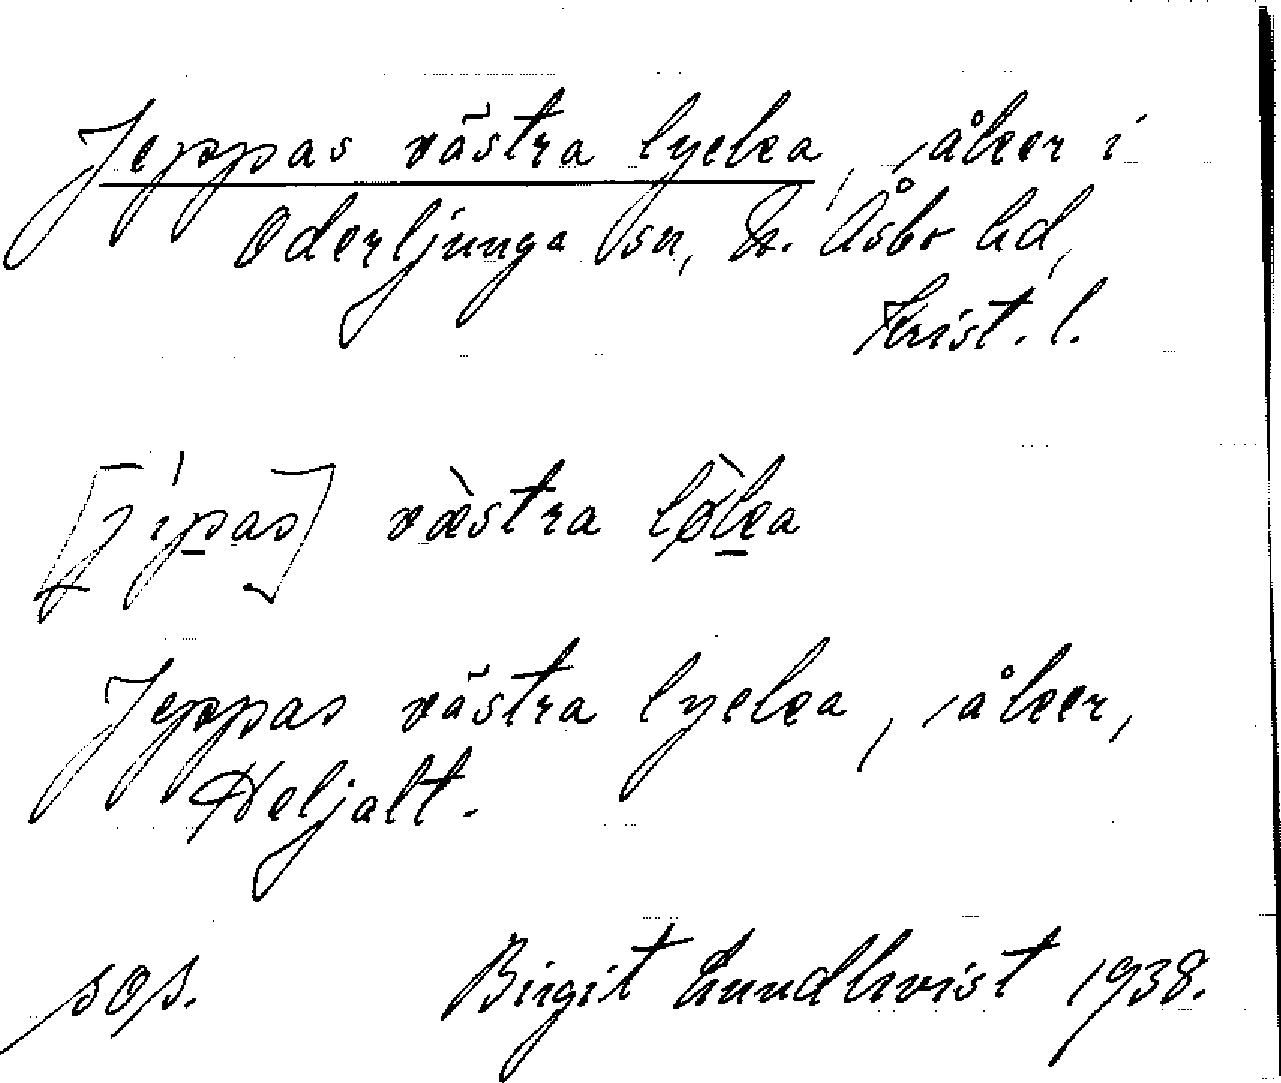 Jeppas västra lycka, åker i
Oderljunga sn, N. Åsbo hd,
Krist. l.
[jípas] væ̀stra lø̀ka
Jeppas västra lycka, åker,
Heljalt.
sos. Birgit Lundkvist 1938.